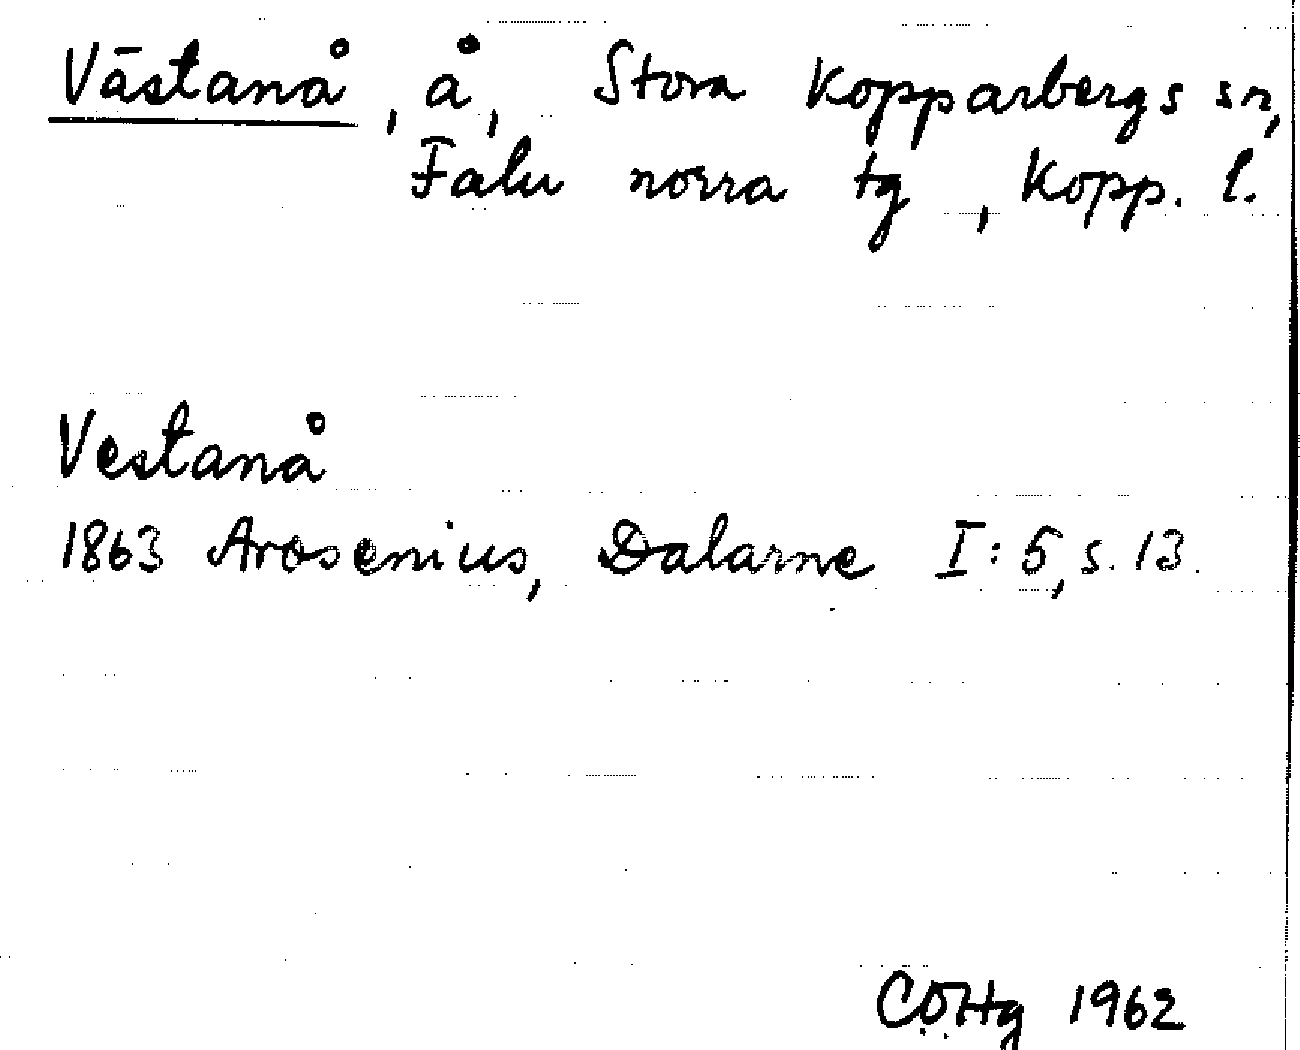 Västanå, å, Stora Kopparbergs sn,
Falu norra tg, Kopp. l.
Vestanå
1863 Arosenius, Dalarne I:5, s. 13.
1962